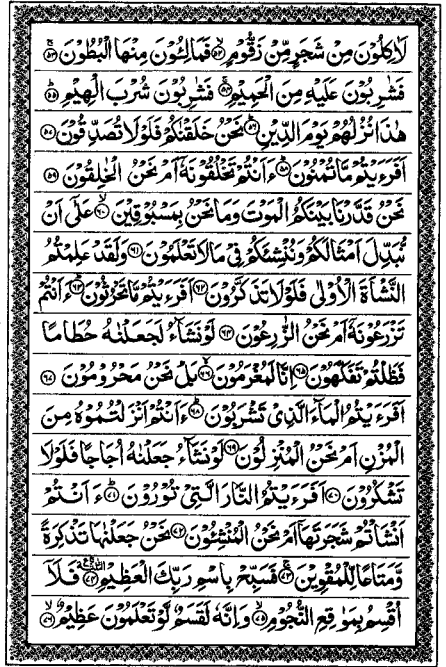 لَاٰكِلُوْنَ مِنْ شَجَرٍ مِّنْ زَقُّوْمٍ ﴿۵۲﴾ فَمَالِـُٔوْنَ مِنْهَا الْبُطُوْنَ ﴿۵۳﴾
فَشٰرِبُوْنَ عَلَيْهِ مِنَ الْحَمِيْمِ ﴿۵۴﴾ فَشٰرِبُوْنَ شُرْبَ الْهِيْمِ ﴿۵۵﴾
هٰذَا نُزُلُهُمْ يَوْمَ الدِّيْنِ ﴿۵۶﴾ نَحْنُ خَلَقْنٰكُمْ فَلَوْلَا تُصَدِّقُوْنَ ﴿۵۷﴾
اَفَرَءَيْتُمْ مَّا تُمْنُوْنَ ﴿۵۸﴾ ءَاَنْتُمْ تَخْلُقُوْنَهٗٓ اَمْ نَحْنُ الْخٰلِقُوْنَ ﴿۵۹﴾
نَحْنُ قَدَّرْنَا بَيْنَكُمُ الْمَوْتَ وَمَا نَحْنُ بِمَسْبُوْقِيْنَ ﴿۶۰﴾ عَلٰٓى اَنْ
نُّبَدِّلَ اَمْثَالَكُمْ وَنُنْشِئَكُمْ فِيْ مَا لَا تَعْلَمُوْنَ ﴿۶۱﴾ وَلَقَدْ عَلِمْتُمُ
النَّشْاَةَ الْاُوْلٰى فَلَوْلَا تَذَكَّرُوْنَ ﴿۶۲﴾ اَفَرَءَيْتُمْ مَّا تَحْرُثُوْنَ ﴿۶۳﴾ ءَاَنْتُمْ
تَزْرَعُوْنَهٗٓ اَمْ نَحْنُ الزّٰرِعُوْنَ ﴿۶۴﴾ لَوْ نَشَآءُ لَجَعَلْنٰهُ حُطَامًا
فَظَلْتُمْ تَفَكَّهُوْنَ ﴿۶۵﴾ اِنَّا لَمُغْرَمُوْنَ ﴿۶۶﴾ بَلْ نَحْنُ مَحْرُوْمُوْنَ ﴿۶۷﴾
اَفَرَءَيْتُمُ الْمَآءَ الَّذِيْ تَشْرَبُوْنَ ﴿۶۸﴾ ءَاَنْتُمْ اَنْزَلْتُمُوْهُ مِنَ
الْمُزْنِ اَمْ نَحْنُ الْمُنْزِلُوْنَ ﴿۶۹﴾ لَوْ نَشَآءُ جَعَلْنٰهُ اُجَاجًا فَلَوْلَا
تَشْكُرُوْنَ ﴿۷۰﴾ اَفَرَءَيْتُمُ النَّارَ الَّتِيْ تُوْرُوْنَ ﴿۷۱﴾ ءَاَنْتُمْ
اَنْشَاْتُمْ شَجَرَتَهَآ اَمْ نَحْنُ الْمُنْشِـُٔوْنَ ﴿۷۲﴾ نَحْنُ جَعَلْنٰهَا تَذْكِرَةً
وَّمَتَاعًا لِّلْمُقْوِيْنَ ﴿۷۳﴾ فَسَبِّحْ بِاسْمِ رَبِّكَ الْعَظِيْمِ ﴿۷۴﴾ فَلَآ
اُقْسِمُ بِمَوٰقِعِ النُّجُوْمِ ﴿۷۵﴾ وَاِنَّهٗ لَقَسَمٌ لَّوْ تَعْلَمُوْنَ عَظِيْمٌ ﴿۷۶﴾